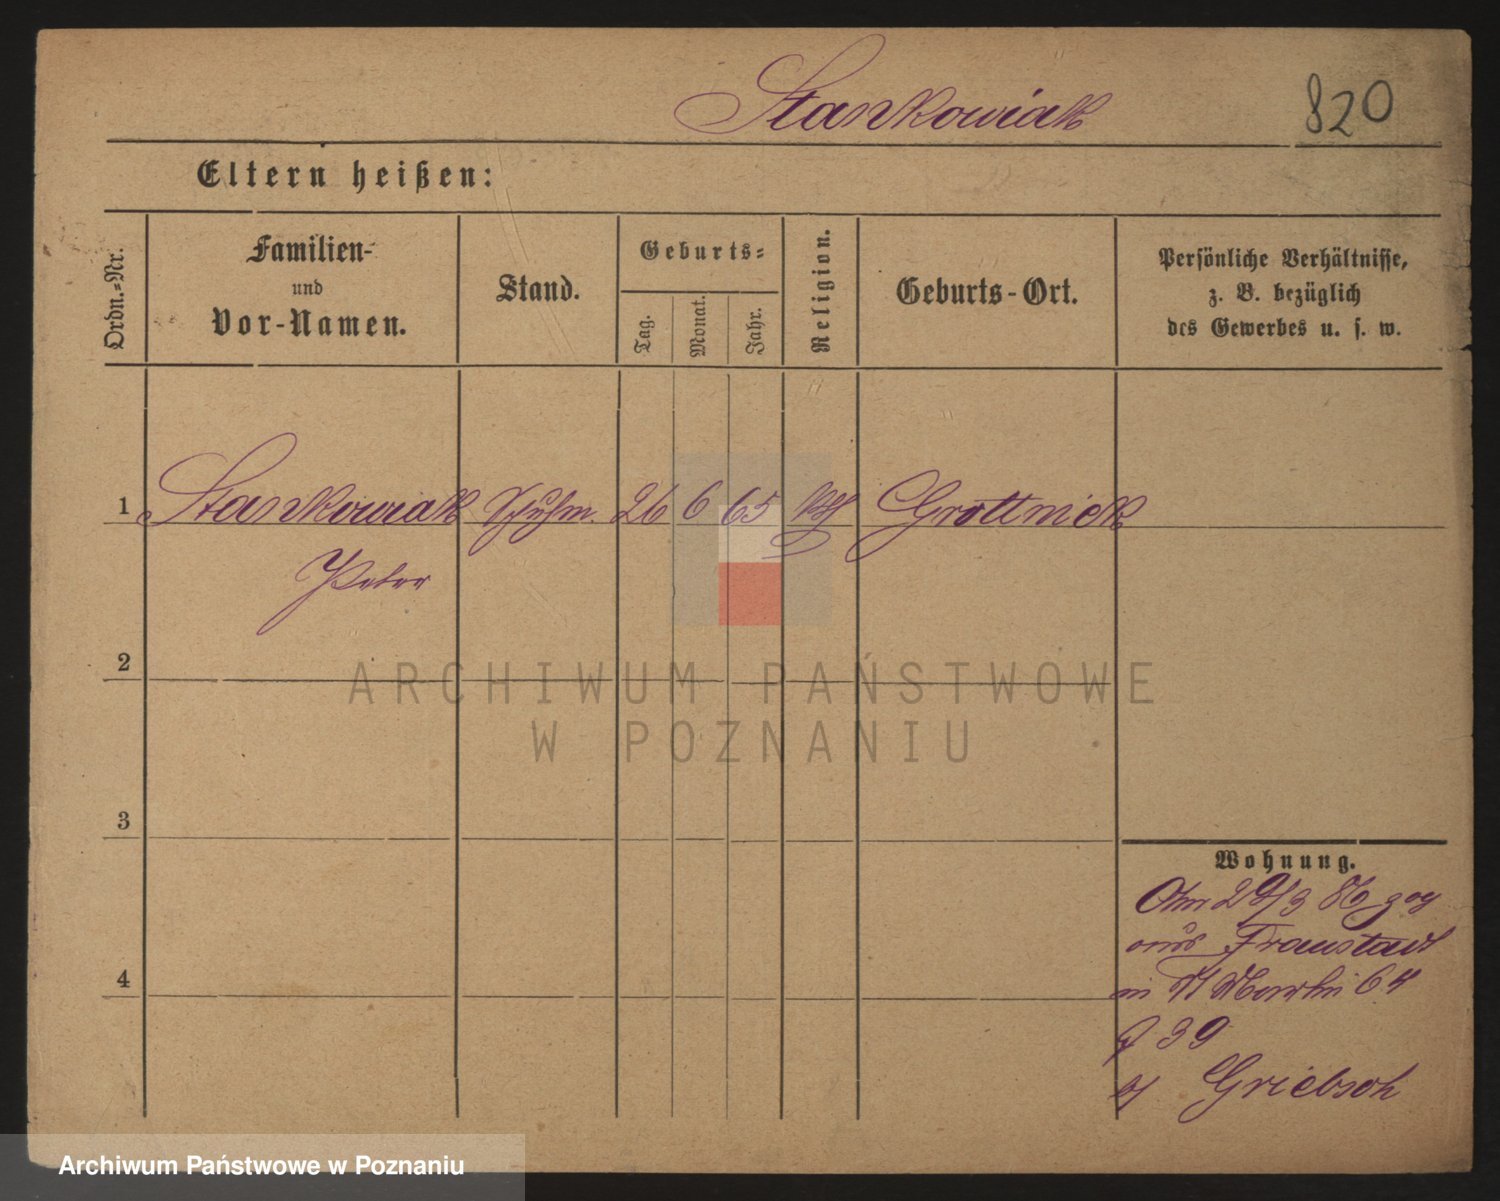 Stankowiak 820
Eltern heißen:
Ordn.=Nr.
Familien-
und
Vor-Namen.
Stand.
Geburts=
Tag.
Monat.
Jahr.
Religion.
Geburts-Ort.
Persönliche Verhältnisse,
z. B. bezüglich
des Gewerbes u. s. w.
1 Stankowiak Schuhm. 26 6 65 kth Grottnick
Peter
2
ARCHIWUM PAŃSTWOWE
W POZNANIU
3
Wohnung.
Am 29/3 86 zog
aus Fraustadt
4
39
Griebsch
Archiwum Państwowe w Poznaniu